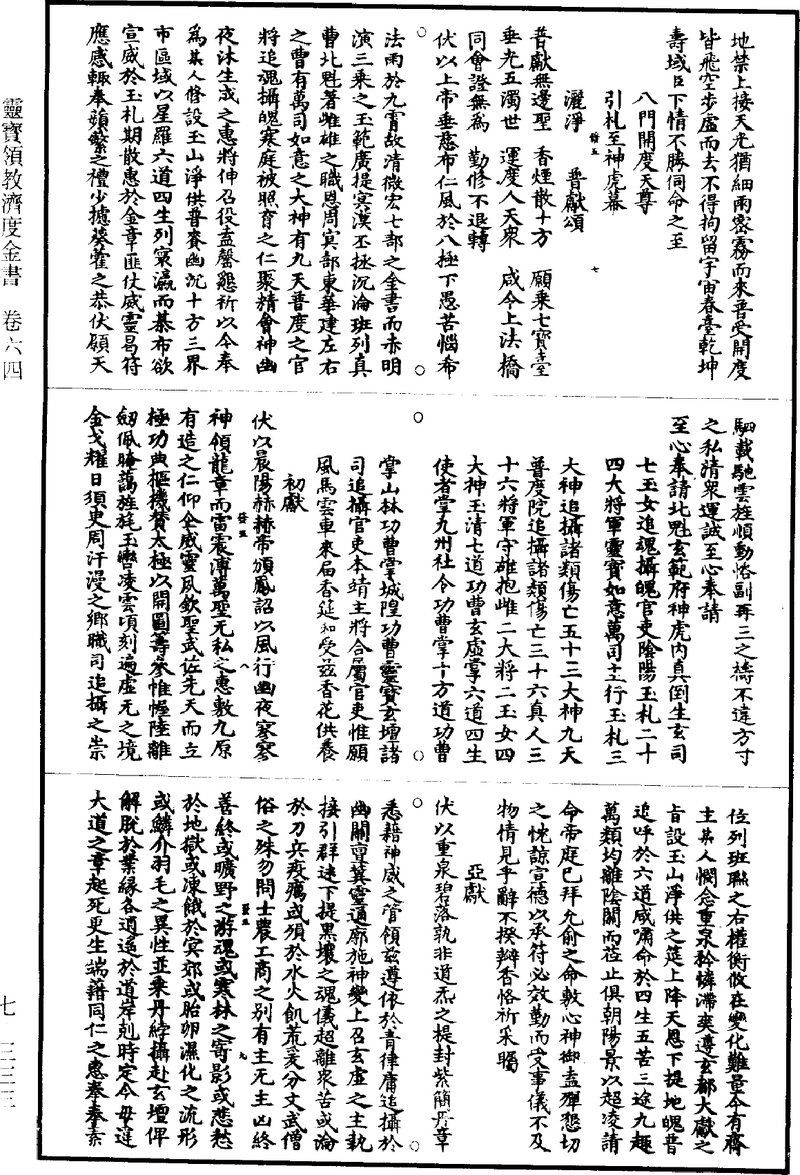 靈寶領教濟度金書　卷六四
七—三三三
地禁上接天光猶細雨密霧而來普受開度
皆飛空步虛而去不得拘留宇宙春臺乾坤
壽域臣下情不勝伺命之至
八門開度天尊
引札至神虎幕
灑淨　普獻頌
普獻無邊聖　香煙散十方　願乘七寶臺
垂光五濁世　運度人天衆　咸令上法橋
同會證無為　勤修不退轉
伏以上帝垂慈布仁風於八極下愚苦惱希
法雨於九霄故清微宏七部之金書而赤明
演三乘之玉範廣提寒漠丕拯沉淪班列真
曹北魁著雌雄之職恩周冥部東華建左右
之曹有萬司如意之大神有九天普度之官
將追魂攝魄寒庭被照育之仁聚精會神幽
夜沐生成之惠將伸召役盍罄懇祈以今奉
為某人修設玉山淨供普賚幽沉十方三界
市區域以星羅六道四生列寰瀛而碁布欲
宣威於玉札期散惠於金章匪仗威靈曷符
應感輒奉蘋蘩之禮少攄葵藿之恭伏願天
駟載馳雲旌順動恪副再三之禱不違方寸
之私清衆運誠至心奉請
至心奉請北魁玄範府神虎內真倒生玄司
七玉女追魂攝魄官吏陰陽玉札二十
四大將軍靈寶如意萬司主行玉札三
大神追攝諸類傷亡五十三大神九天
普度院追攝諸類傷亡三十六真人三
十六將軍守雄抱雌二大將二玉女四
大神玉清七道功曹玄虛掌六道四生
使者掌九州社令功曹掌十方道功曹
掌山林功曹掌城隍功曹靈寶玄壇諸
司追攝官吏本靖主將合屬官吏惟願
風馬雲車來届香筵和受茲香花供養
初獻
伏以晨陽赫赫帝頒鳳詔以風行幽夜寥寥
神領龍章而雷震溥萬聖无私之惠敷九原
有造之仁仰企威靈夙欽聖武佐先天而立
極功典樞機賛太極以開圖籌參惟幄陸離
劒佩晻藹旌旄玉轡凌雲頃刻遍虛无之境
金戈耀日須臾周汗漫之鄉職司追攝之崇
位列班聯之右權衡攸在變化難量今有齋
主某人憫念重泉矜憐滯爽遵玄都大獻之
旨設玉山淨供之筵上降天恩下提地魄普
追呼於六道咸嘯命於四生五苦三途九趣
萬類均離陰關而蒞止俱朝陽景以超凌請
命帝庭已拜允俞之命敷心神御盍殫懇切
之忱諒宣德以承符必效勤而受事儀不及
物情見乎辭不揆瓣香恪祈采矚
亞獻
伏以重泉碧落孰非道炁之提封紫簡丹章
悉籍神威之管領茲遵依於青律庸追攝於
幽關亶冀靈通廓施神變上召玄虛之主執
接引群迷下提黑壤之魂儀超離衆苦或淪
於刀兵疫癘或殞於水火飢荒爰分文武僧
俗之殊勿問士農工商之別有主无主凶終
善終或曠野之游魂或寒林之寄影或悲愁
於地獄或凍餓於冥郊或胎卵濕化之流形
或鱗介羽毛之異性並乘丹綍攝赴玄壇俾
解脫於業緣各逍遥於道岸剋時定今毋違
大道之章起死更生端藉同仁之惠奉奉素